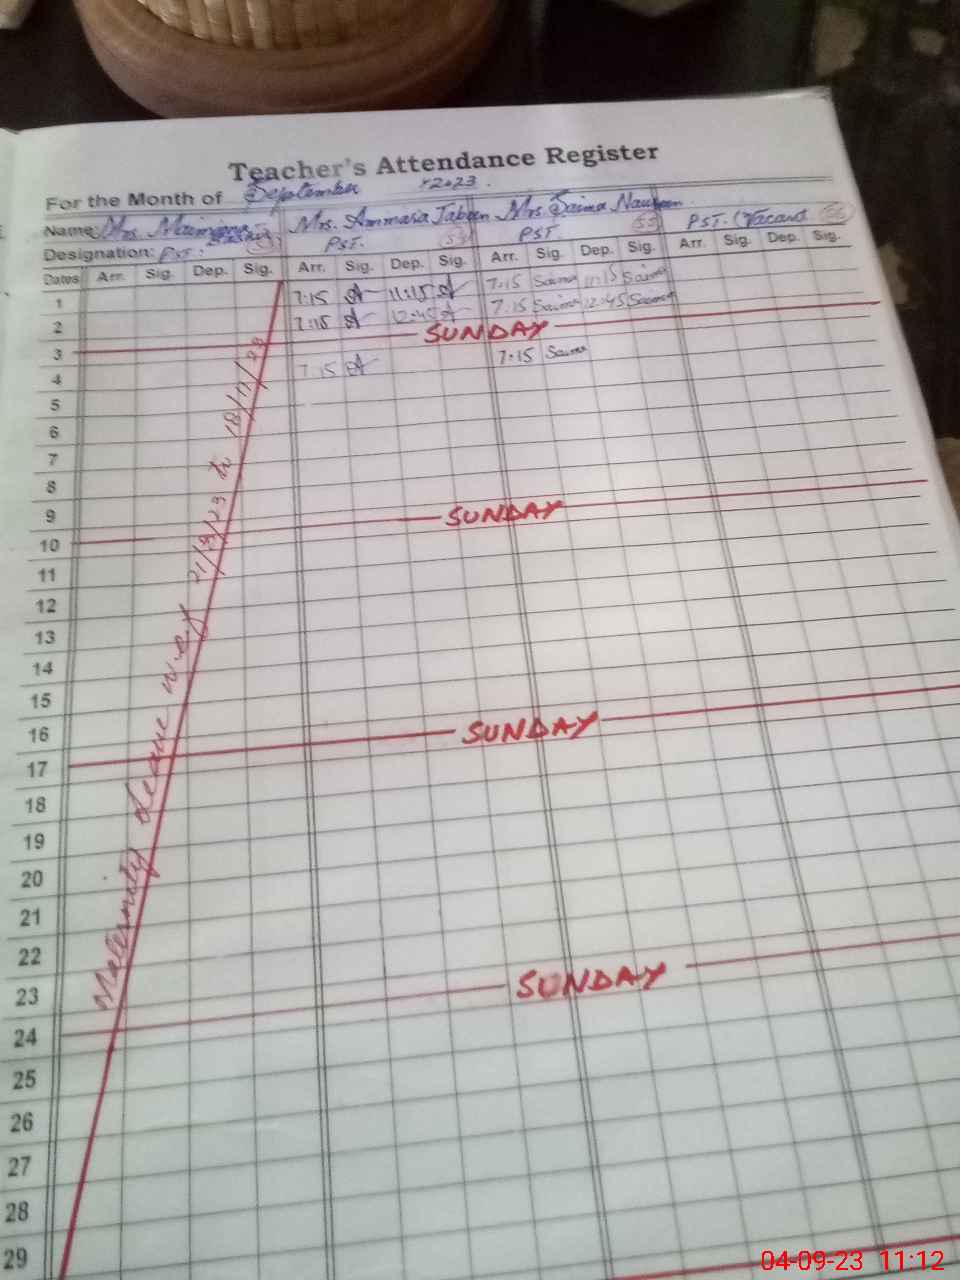 Teacher's Attendance Register
For the Month of September 2023.
Name: Mrs. Maimona Mrs. Ammara Jabeen Mrs. Saima Naureen
Designation: PST. PST. 53 PST 55 PST. (Vacant) 56
Dates Arr. Sig. Dep. Sig. Arr. Sig. Dep. Sig. Arr. Sig. Dep. Sig. Arr. Sig. Dep. Sig.
1 7:15 11:15 7:15 Saima 11:15 Saima
2 7:15 12:45 7.15 Saima 12:45 Saima
3 SUNDAY
4 7.15 7.15 Saima
5
6
7
8
9
10 SUNDAY
11
12
13
14
15
16
17 SUNDAY
18
19
20
21
22
23
24 SUNDAY
25
26
27
28
29
Maternity leave w.e.f 21/8/23 to 18/11/23
04-09-23 11:12